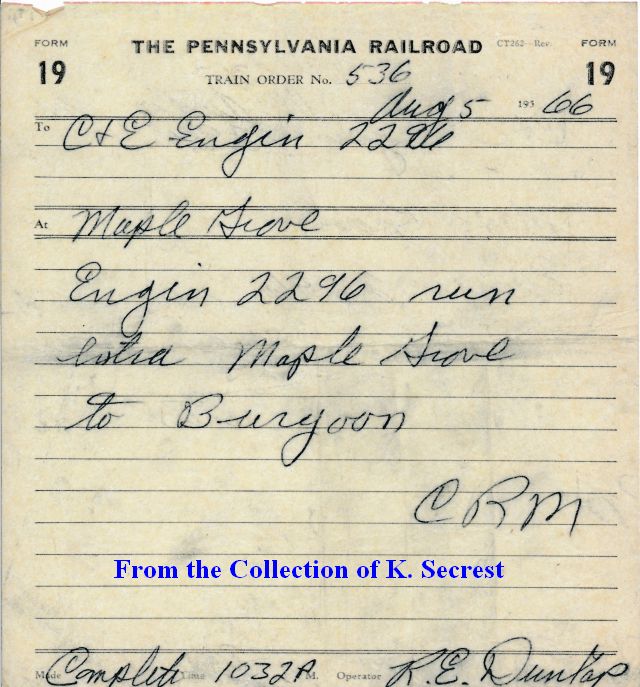 FORM THE PENNSYLVANIA RAILROAD CT262—Rev. FORM
19 TRAIN ORDER No. 536 19
Aug 5 193 66
To C & E Engin 2296
At Maple Grove
Engin 2296 run
extra Maple Grove
to Burgoon
C R M
From the Collection of K. Secrest
Made Complete Time 1032 A M. Operator R.E. Dunlap